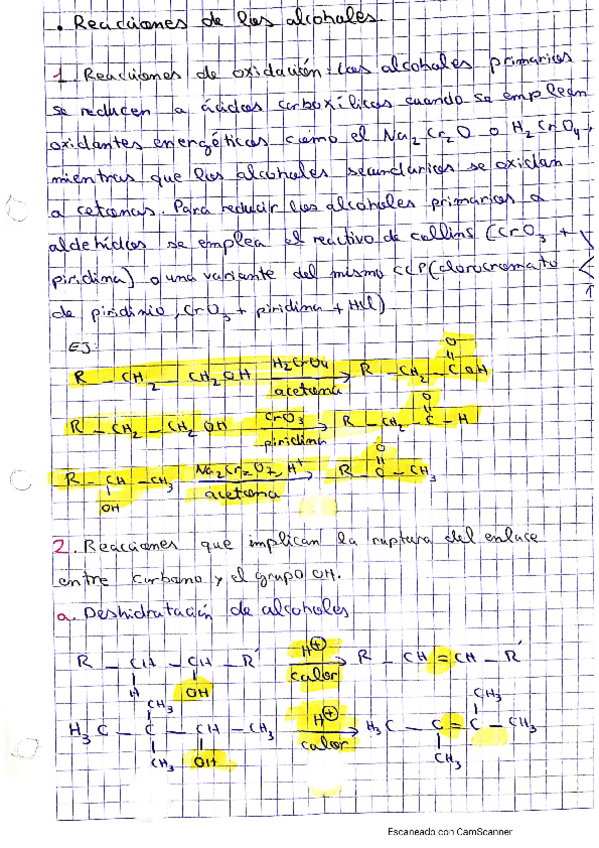 • Reacciones de los alcoholes.
1. Reacciones de oxidación: Los alcoholes primarios
se reducen a ácidos carboxílicos cuando se emplean
oxidantes energéticos como el Na2Cr2O o H2CrO4,
mientras que los alcoholes secundarios se oxidan
a cetonas. Para reducir los alcoholes primarios a
aldehídos se emplea el reactivo de collins (CrO3 +
piridina) o una variante del mismo CCP (clorocromato
de piridinio, CrO3 + piridina + HCl)
EJ:
O
R - CH2 - CH2OH H2CrO4 → R - CH2 - C OH
acetona
O
R - CH2 - CH2OH CrO3 → R - CH2 - C - H
piridina
O
R - CH - CH3 Na2Cr2O7, H+ → R - C - CH3
OH acetona
2. Reacciones que implican la ruptura del enlace
entre carbono y el grupo OH.
a. Deshidratación de alcoholes
R - CH - CH - R' H⊕ → R - CH = CH - R'
H OH calor
CH3 CH3
H3C - C - CH - CH3 H⊕ → H3C - C = C - CH3
CH3 OH calor CH3
Escaneado con CamScanner